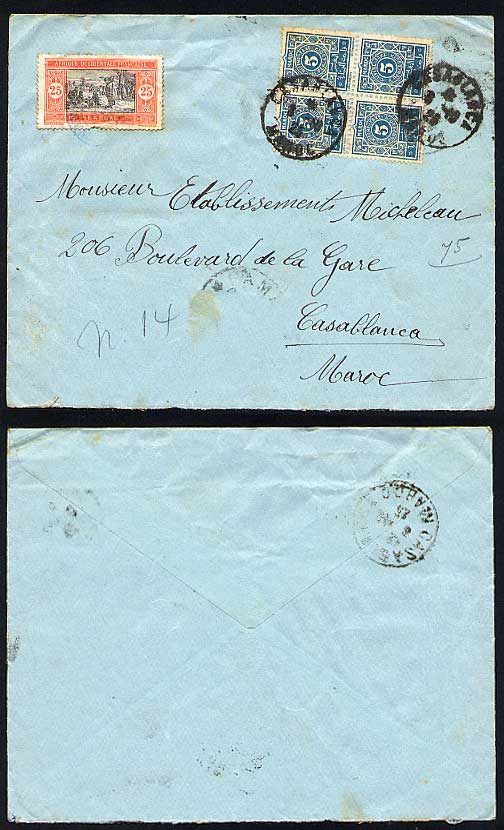 AFRIQUE OCCIDENTALE FRANÇAISE
25 25
SENEGAL
5 5
5 5
CASABLANCA
MAROC
Monsieur Etablissements Micheleau
206 Boulevard de la Gare
75
n. 14
Casablanca
Maroc
MAROC